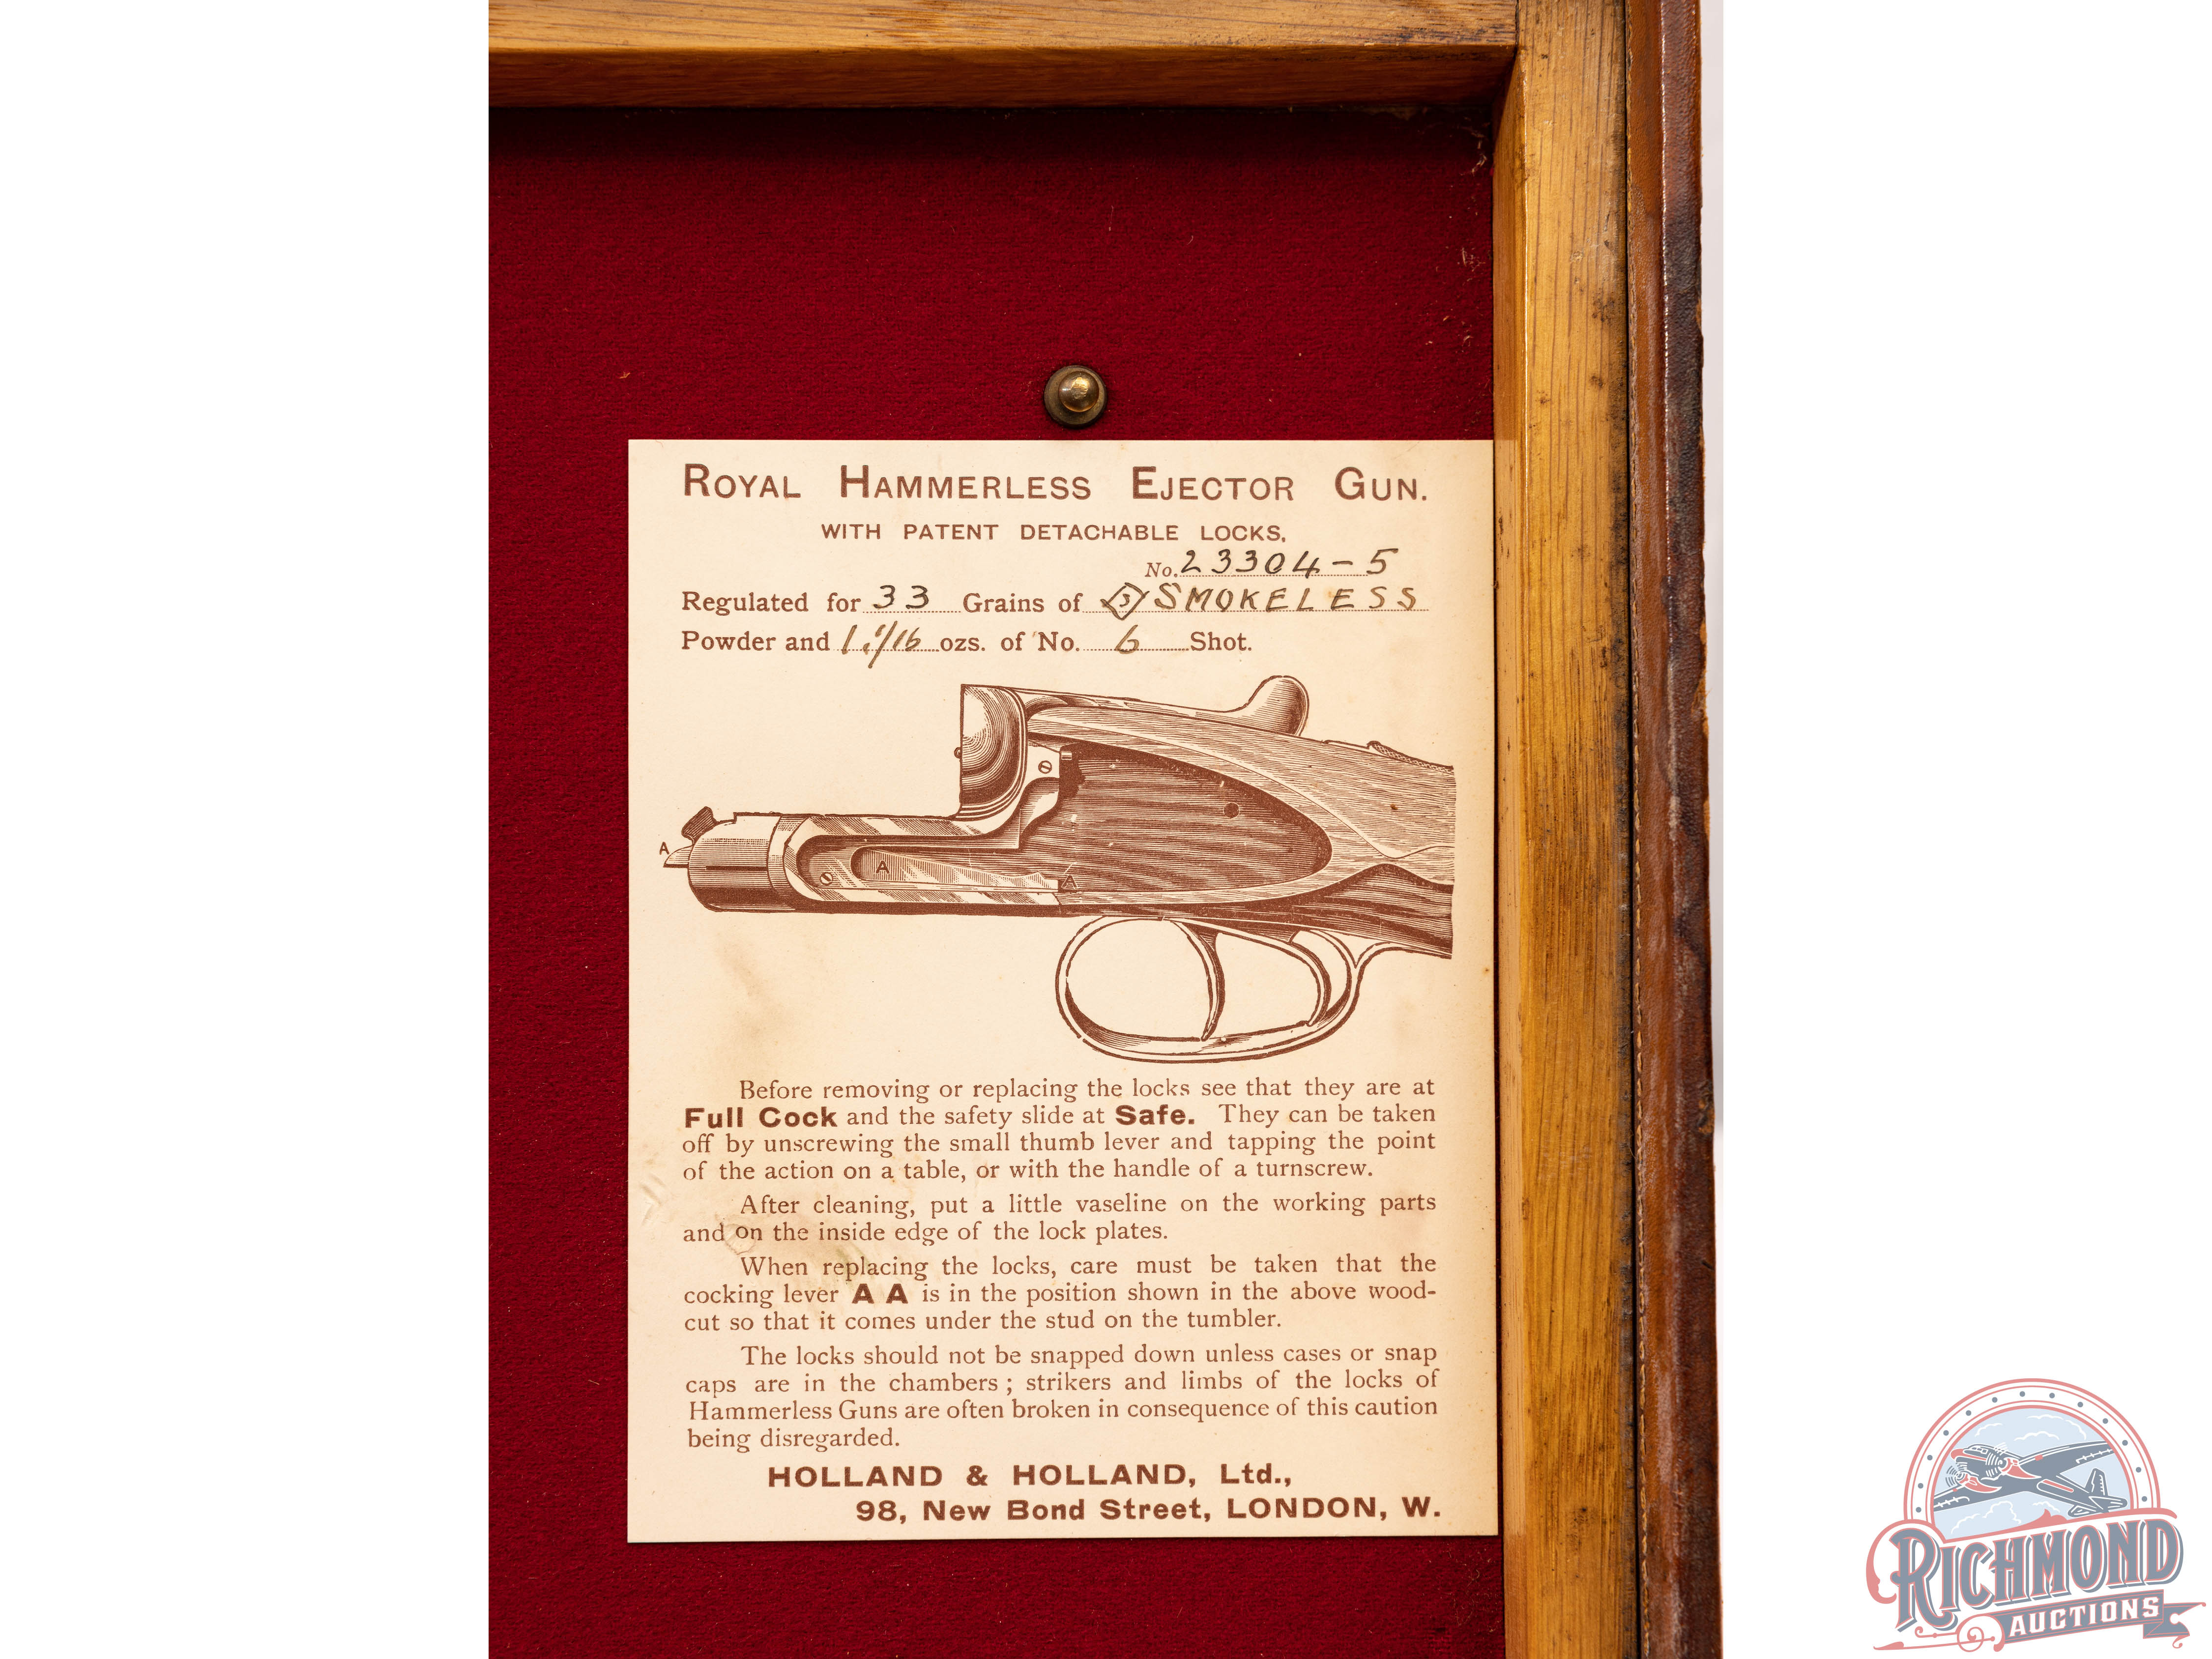 ROYAL HAMMERLESS EJECTOR GUN.
WITH PATENT DETACHABLE LOCKS,
No. 23304-5
Regulated for 33 Grains of <3> SMOKELESS
Powder and 1.1/16 ozs. of No. 6 Shot.
A
A
A
Before removing or replacing the locks see that they are at
Full Cock and the safety slide at Safe. They can be taken
off by unscrewing the small thumb lever and tapping the point
of the action on a table, or with the handle of a turnscrew.
After cleaning, put a little vaseline on the working parts
and on the inside edge of the lock plates.
When replacing the locks, care must be taken that the
cocking lever A A is in the position shown in the above wood-
cut so that it comes under the stud on the tumbler.
The locks should not be snapped down unless cases or snap
caps are in the chambers ; strikers and limbs of the locks of
Hammerless Guns are often broken in consequence of this caution
being disregarded.
HOLLAND & HOLLAND, Ltd.,
98, New Bond Street, LONDON, W.
RICHMOND
AUCTIONS